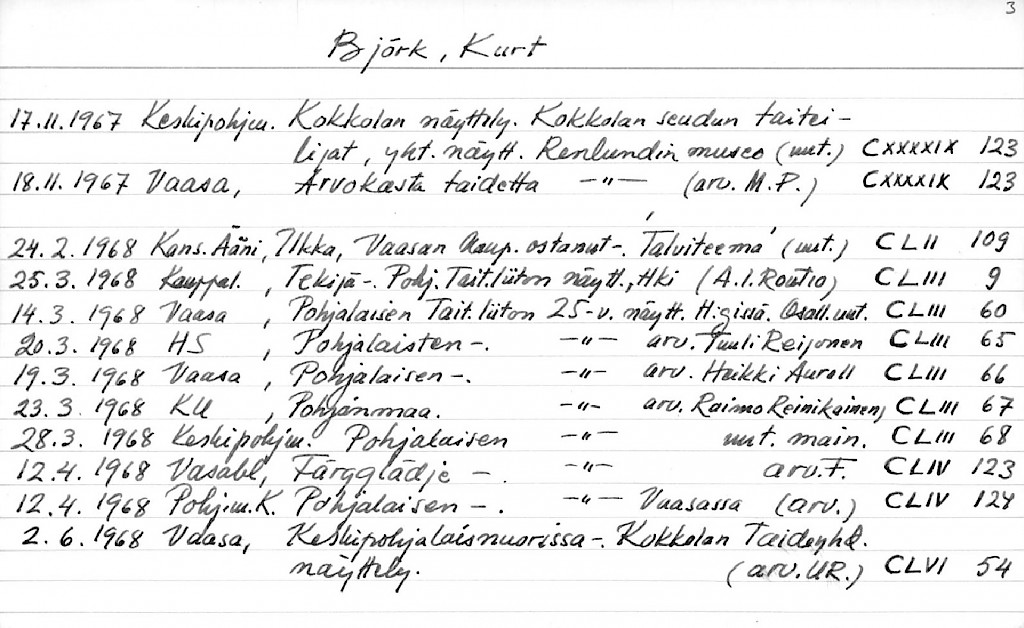 3
Björk, Kurt
17.11.1967 Keskipohjm. Kokkolan näyttely. Kokkolan seudun taitei-
lijat, yht. näytt. Renlundin museo (uut.) CXXXXIX 123
18.11.1967 Vaasa, Arvokasta taidetta -"- (arv. M.P.) CXXXXIX 123
24.2.1968 Kans. Ääni, Ilkka, Vaasan kaup. ostanut-, 'Talviteema' (uut.) CLII 109
25.3.1968 Kauppal., Tekijä-. Pohj. Tait.liiton näytt., Hki (A.I. Routio) CLIII 9
14.3.1968 Vaasa, Pohjalaisen Tait.liiton 25-v. näytt. H:gissä. Osall. uut. CLIII 60
20.3.1968 HS, Pohjalaisten-. -"- arv. Tuuli Reijonen CLIII 65
19.3.1968 Vaasa, Pohjalaisen-. -"- arv. Heikki Auroll CLIII 66
23.3.1968 KU, Pohjanmaa. -"- arv. Raimo Reinikainen, CLIII 67
28.3.1968 Keskipohjm. Pohjalaisen -"- uut. main. CLIII 68
12.4.1968 Vasabl, Färgglädje - -"- arv. F. CLIV 123
12.4.1968 Pohjm. K. Pohjalaisen-. -"- Vaasassa (arv.) CLIV 124
2.6.1968 Vaasa, Keskipohjalaisnuorissa-. Kokkolan Taideyhd.
näyttely. (arv. UR.) CLVI 54